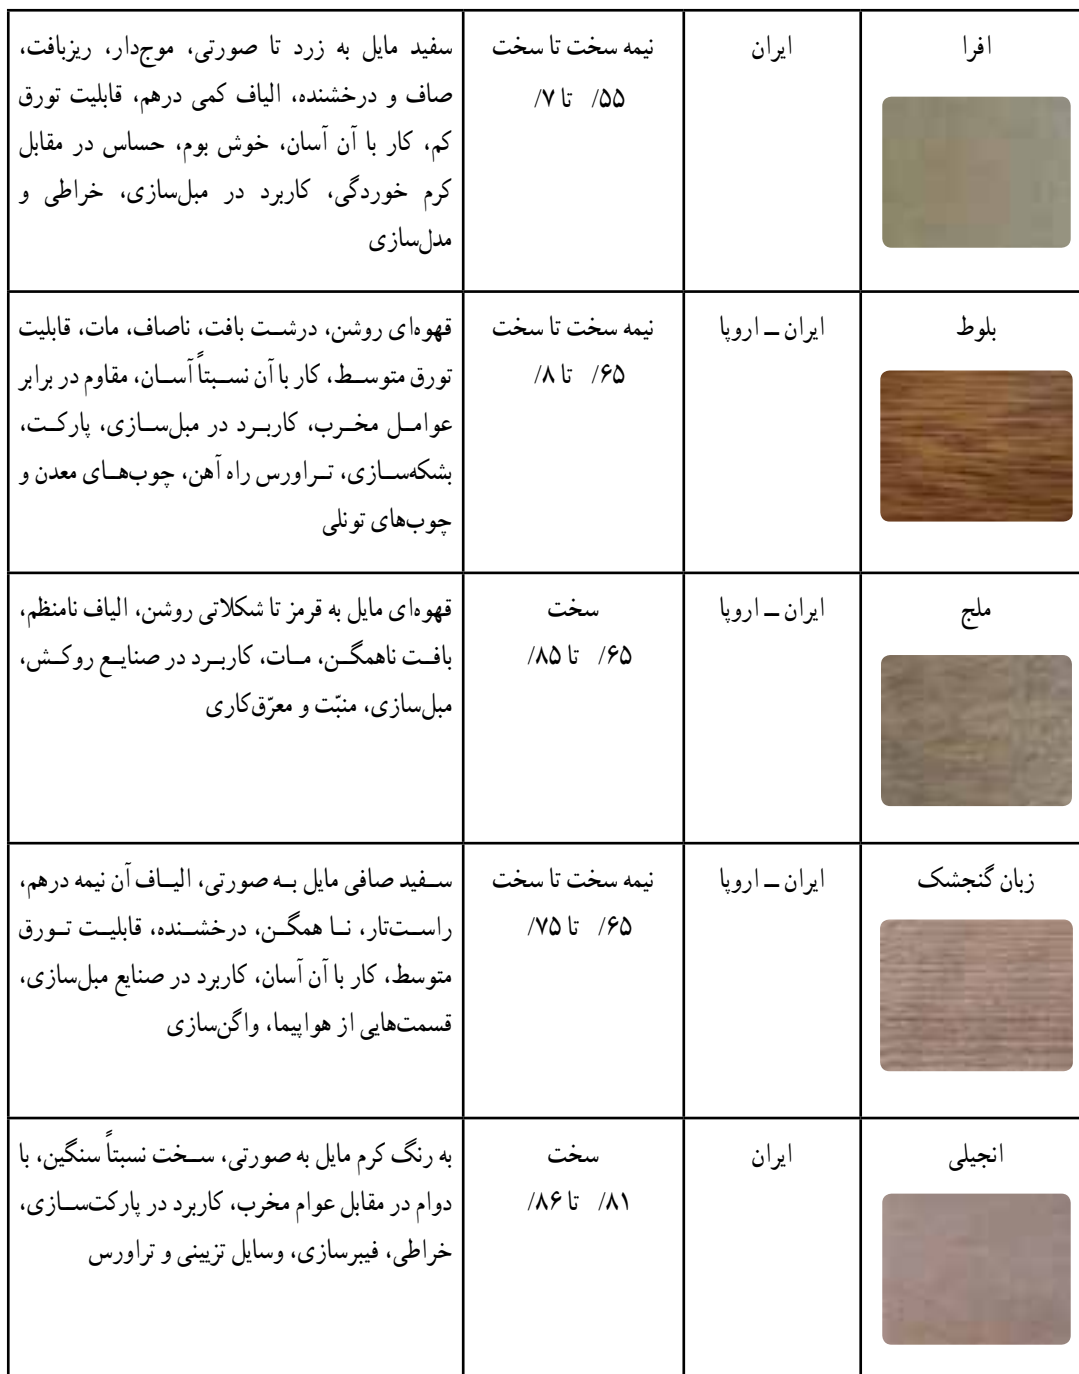 افرا
ایران
نیمه سخت تا سخت
۵۵/ تا ۷/
سفید مایل به زرد تا صورتی، موج‌دار، ریزبافت،
صاف و درخشنده، الیاف کمی درهم، قابلیت تورق
کم، کار با آن آسان، خوش بوم، حساس در مقابل
کرم خوردگی، کاربرد در مبل‌سازی، خراطی و
مدل‌سازی
بلوط
ایران ــ اروپا
نیمه سخت تا سخت
۶۵/ تا ۸/
قهوه‌ای روشن، درشت بافت، ناصاف، مات، قابلیت
تورق متوسط، کار با آن نسبتاً آسان، مقاوم در برابر
عوامل مخرب، کاربرد در مبل‌سازی، پارکت،
بشکه‌سازی، تراورس راه آهن، چوب‌های معدن و
چوب‌های تونلی
ملج
ایران ــ اروپا
سخت
۶۵/ تا ۸۵/
قهوه‌ای مایل به قرمز تا شکلاتی روشن، الیاف نامنظم،
بافت ناهمگن، مات، کاربرد در صنایع روکش،
مبل‌سازی، منبّت و معرّق‌کاری
زبان گنجشک
ایران ــ اروپا
نیمه سخت تا سخت
۶۵/ تا ۷۵/
سفید صافی مایل به صورتی، الیاف آن نیمه درهم،
راست‌تار، نا همگن، درخشنده، قابلیت تورق
متوسط، کار با آن آسان، کاربرد در صنایع مبل‌سازی،
قسمت‌هایی از هواپیما، واگن‌سازی
انجیلی
ایران
سخت
۸۱/ تا ۸۶/
به رنگ کرم مایل به صورتی، سخت نسبتاً سنگین، با
دوام در مقابل عوام مخرب، کاربرد در پارکت‌سازی،
خراطی، فیبرسازی، وسایل تزیینی و تراورس